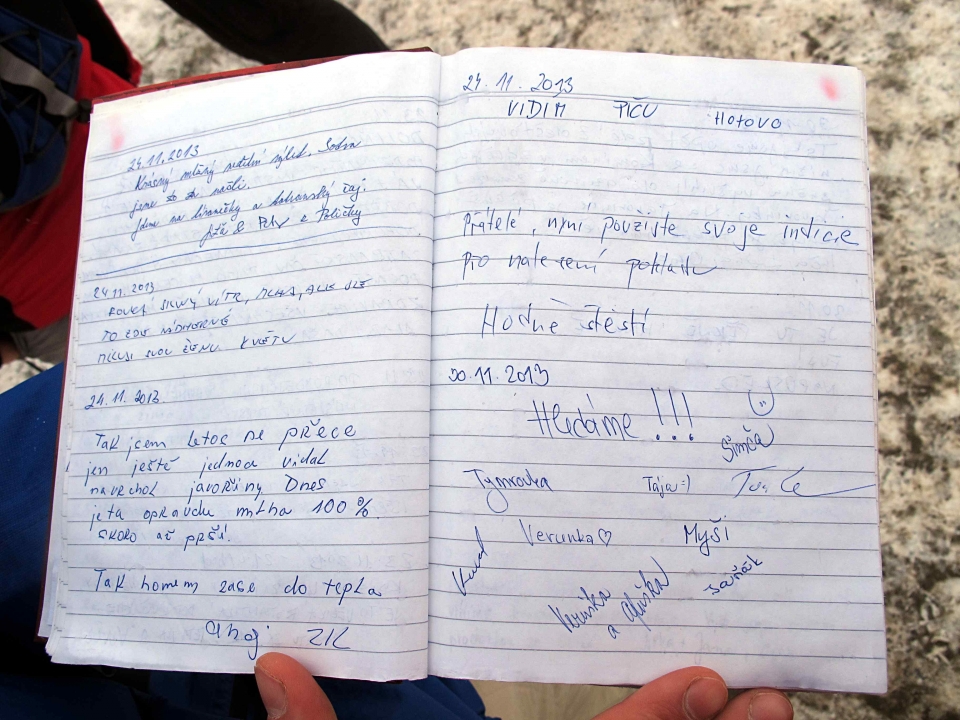 24.11.2013
Krásný mlžný nedělní výlet. Sedm
jsme to našli.
Jdeme na a čaj.
Petr z Poličky
24.11.2013
FOUKÁ SILNÝ VÍTR, MLHA, ALE JE
TO ZDE NÁDHERNÉ
SVOU ŽENU KVĚTU
24.11.2013
Tak jsem letos se přece
jen ještě jednou vidal
na vrchol javořiny Dnes
je ta opravdu mlha 100%.
SKORO až prší.
Tak honem zase do tepla
Ahoj
24.11.2013
VIDÍM PIČU HOTOVO
Přátelé, nyní použijte svoje indície
Pro nalezení pokladu
Hodně štěstí
30.11.2013
Hledáme !!!
Simča
Týnrovka Tája :)
Verunka♡ Myši
Karel
Veruška
a